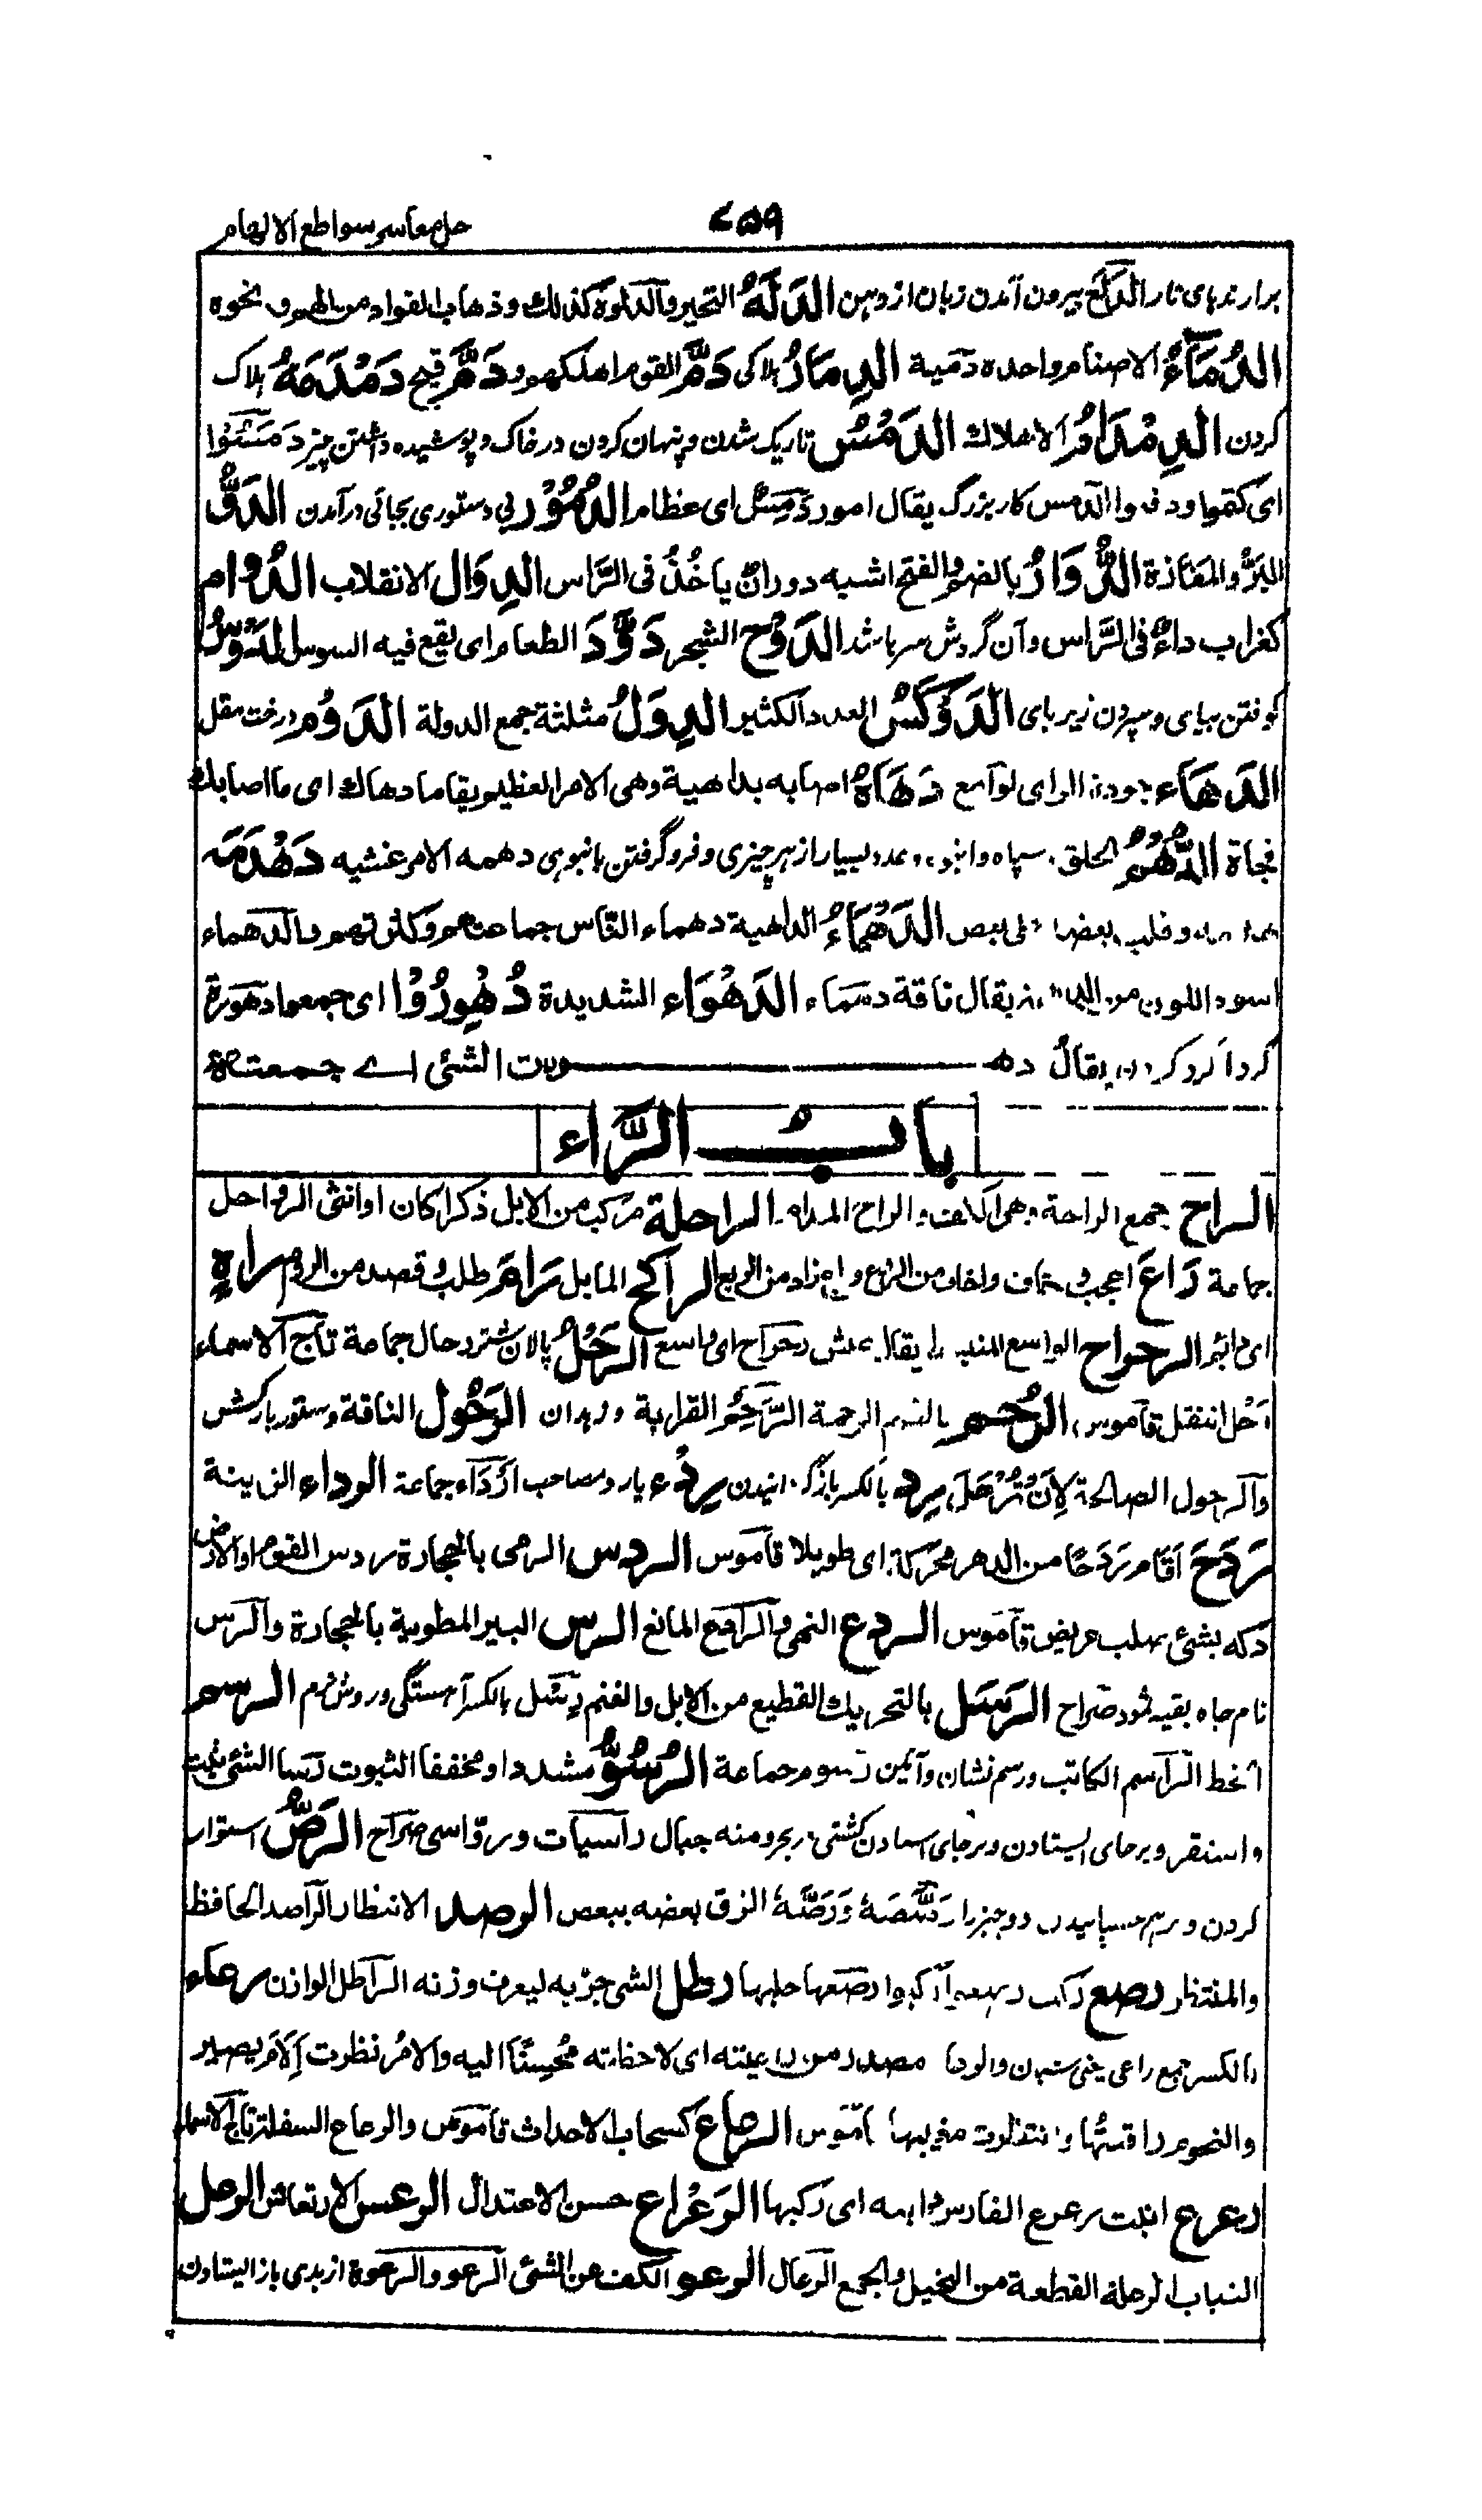 ۷۵۹ حل معاسر سواطع الالهام
الدلع بیرون آمدن زبان از دهن الدَلَهُ التحیر والدلوة کذلك وذهاب الفواد من الهم ونحوه
الدُمَآءُ الاصنام واحده دمیة الدِمَارُ ہلاکی دَمَّ القوم اهلکهم و دَمَّ قبح دَمْدَمَهُ ہلاک
کردن الدِمْدَامُ الاهلاك الدَمْسُ تاریک شدن و پنہان کردن در خاک و پوشیده داشتن چیز دَمَسُوْا
ای کتموا ودفنوا الدمس کار بزرگ یقال امور دُمْسٌ ای عظام الدُمُوْر بی دستوری بجائی درآمدن الدَوُّ
البَرُّ والمفازة الدُّوَارُ بالضم والفتح شبه دوران یاخُذُ فی الرَّاس الدِوَال الانقلاب الدُوام
کغراب داءٌ فی الرَّاس وآن گردش سر باشد الدَوْح الشجر دَوَّدَ الطعام ای یقع فیه السوس الدَوْسُ
کوفتن بپای و سپردن زیر پای الدَوْکَسُ العدد الکثیر الدِوَلُ مثلثة جمع الدولة الدَوْم درخت مقل
الدَهَآء جودة الرای لوامع دَهَاهُ اصابه بداهیة وهی الامر العظیم یقا ما دهاك ای ما اصابك
فجاة الدَّهْمُ الخلق سپاه و انبوه وعدد بسیار از ہر چیزی و فرو گرفتن بانبوہی دهمه الامر غشیه دَهْدَمَه
هدمه وقلب بعضه علی بعض الدَهْمَاءُ الداهیة دهماء النّاس جماعتهم وکثرتهم والدهماء
اسود اللون یقال ناقة دهماء الدَهْوَاء الشدیدة دُهْوِرُوْا ای جمعوا دهورة
گرد آگرد کردن یقال دهـورت الشئ اے جمعتہ
بابُ الرَّاء
الراح جمع الراحة وهی الکف والراح المدام الراحلة مرکب من الابل ذکرا کان او انثی الرواحل
جماعة رَاعَ اعجب وخاف واخاف من الروع وایضا زاد من الریع الراکح المایل رَامَ طلب وقصد من الروم راہٍ
ای دائم الرحراح الواسع المنبسط یقال عیش رحراح ای واسع الرَحْلُ پالان شتر رحال جماعة تاج الاسماء
رَحْل انتقل قاموس الرُحْم بالضم الرحمة الرَّحِمُ القرابة و زہدان الرَحُول الناقة وستور بارکش
والرحول الصالحة لِاَنْ تُرْحَلَ رد بالکسر بازگردانیدن رِدْء یار ومصاحب ارْدَآء جماعة الرداء الزینة
رَدَحَ اقَام رَدَحًا من الدهر محرکة ای طویلا قاموس الردس الرمی بالحجارة ردس القوم او الارض
دکه بشئ صلب عریض قاموس الردع النهی والرادع المانع الرس البیر المطویة بالحجارة والرس
نام چاہ بقیه ثمود صراح الرَسَل بالتحریك القطیع من الابل والغنم رِسْل بالکسر آهستگی و روش نرم الرسم
الخط الراسم الکاتب ورسم نشان وآئین رسوم جماعة الرُسُوُّ مشددا و مخففا الثبوت رسا الشئ ثبت
واستقر وبرجای ایستادن وبرجای ایستادن کشتی در بحر ومنه جبال راسیات ورواسی صراح الرَصُّ استوار
کردن و بہم چسپانیدن دو چیز را رَصَّصَهُ وَرَصَّهُ الزق بعضه ببعض الرصد الانتظار الراصد الحافظ
والمنتظر رصع رکب رصعه ارکبوا رصعها حلیها رطل الشی جرّبه لیعرف وزنه الراطل الوازن رعاء
بالکسر جمع راعی یعنی شبان والرعا مصدر من راعیته ای لاحظته مُحْسِنًا الیه والامْرَ نظرت اِلَامَ یصیر
والنجوم راقبتُها وانتظرت مغیبها قاموس الرعاع کسحاب الاحداث قاموس والرعاع السفلة تاج الاسماء
رعرع انبت رعرع الفارس دابته ای رکبها الرَعْرَاع حسن الاعتدال الرعس الارتعاش الرعل
النباب الرعلة القطعة من الخیل والجمع الرعال الرعو الکف عن الشئ الرعو والرعوة از بدی باز ایستادن